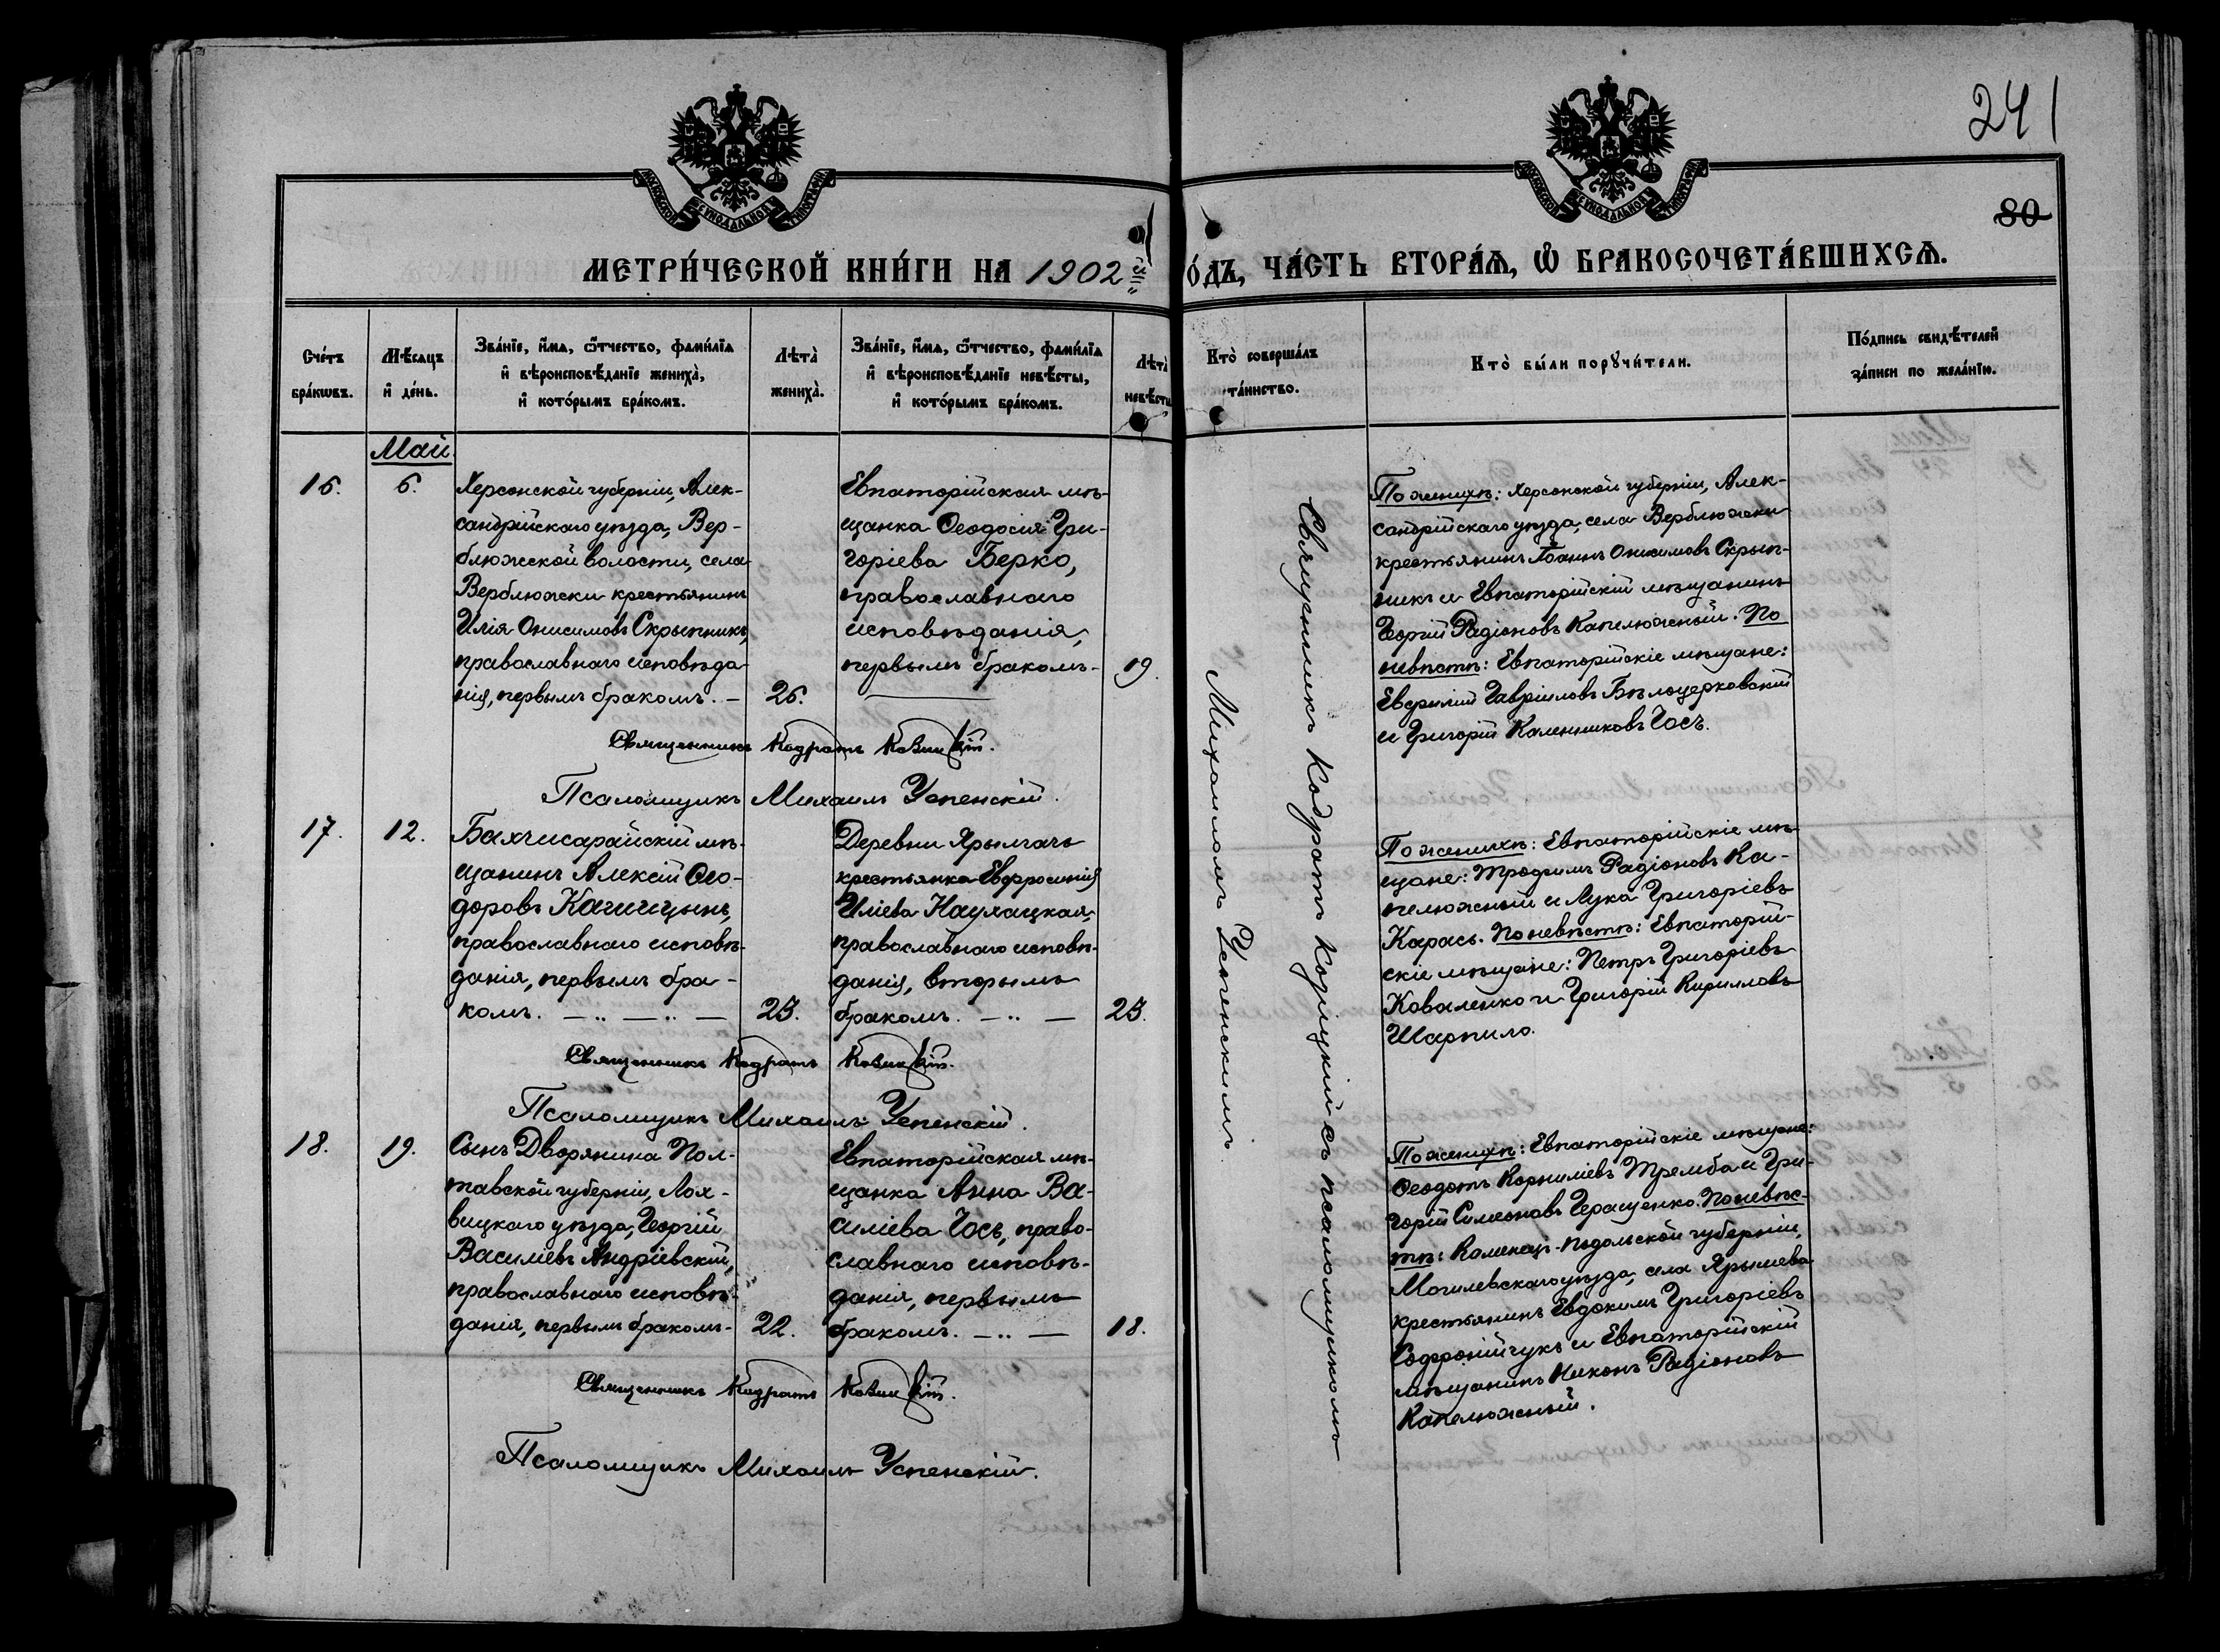 241
80
МЕТРИ́ЧЕСКОЙ КНИ́ГИ НА 1902й
О́ДЪ, ЧА́СТЬ ВТОРА́Ѧ, Ѿ БРАКОСОЧЕТА́ВШИХСѦ.
Сче́тъ бра́кѡвъ.
Мѣ́сяцъ и҆ де́нь.
Зва́нїе, и҆́мѧ, ѻ҆́тчество, фами́лїѧ
и҆ вѣроисповѣ́данїе жениха̀,
и҆ кото́рымъ бра́комъ.
Лѣта̀ жениха̀.
Зва́нїе, и҆́мѧ, ѻ҆́тчество, фами́лїѧ
и҆ вѣроисповѣ́данїе невѣ́сты,
и҆ кото́рымъ бра́комъ.
Лѣта̀ невѣ́сты
Кто̀ соверша́лъ та́инство.
Кто̀ бы́ли порꙋчи́тели.
По́дпись свидѣ́телей
за́писи по жела́нїю.
Май
16.
6.
Херсонской губерніи, Алек-
сандрійскаго уѣзда, Вер-
блюжской волости, села
Верблюжки крестьянинъ
Илія Онисимовъ Скрыпникъ,
православнаго исповѣда-
нія, первымъ бракомъ. —
26.
Евпаторійская мѣ-
щанка Ѳеодосія Гри-
горіева Берко,
православнаго
исповѣданія,
первымъ бракомъ. -
19.
По женихѣ: Херсонской губерніи, Алек-
сандрійскаго уѣзда, села Верблюжки
крестьянинъ Іоаннъ Онисимовъ Скрып-
никъ и Евпаторійскій мѣщанинъ
Георгій Радіоновъ Капелюжный. По
невѣстѣ: Евпаторійскіе мѣщане:
Евфимій Гавріиловъ Бѣлоцерковскій
и Григорій Каленниковъ Гось.
Священникъ Кодратъ
Псаломщикъ Михаилъ Успенскій.
17.
12.
Бахчисарайскій мѣ-
щанинъ Алексій Ѳео-
доровъ
православнаго исповѣ-
данія, первымъ бра-
комъ. — „ — „ —
25.
Деревни Ярылгачъ
крестьянка Евфросинія
Иліева
православнаго исповѣ-
данія, вторымъ
бракомъ. — „ —
25.
По женихѣ: Евпаторійскіе мѣ-
щане: Трофимъ Радіоновъ Ка-
пелюжный и Лука Григоріевъ
Карась. По невѣстѣ: Евпаторій-
скіе мѣщане: Петръ Григоріевъ
Коваленко и Григорій Кирилловъ
Шарпило.
Священникъ Кодратъ
Псаломщикъ Михаилъ Успенскій.
18.
19.
Сынъ Дворянина Пол-
тавской губерніи, Лох-
вицкаго уѣзда, Георгій
Василіевъ Андріевскій,
православнаго исповѣ-
данія, первымъ бракомъ. -
22.
Евпаторійская мѣ-
щанка Анна Ва-
силіева Гось, право-
славнаго исповѣ-
данія, первымъ
бракомъ. — „ —
18.
По женихѣ: Евпаторійскіе мѣщане:
Ѳеодотъ Корниліевъ Тремба и Гри-
горій Симеоновъ Геращенко. По невѣс-
тѣ: Каменец-Подольской губерніи,
Могилевскаго уѣзда, села Ярышева
крестьянинъ Евдокимъ Григоріевъ
Софронійчукъ и Евпаторійскій
мѣщанинъ Никонъ Радіоновъ
Капелюжный.
Священникъ Кодратъ
Псаломщикъ Михаилъ Успенскій.
Священникъ Кодратъ съ псаломщикомъ
Михаиломъ Успенскимъ